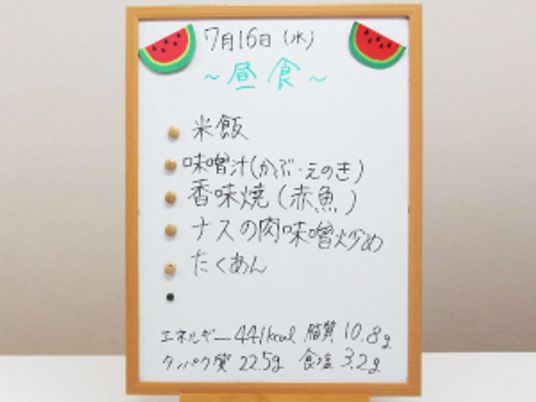 7月16日（水）
～昼食～
米飯
味噌汁(かぶ・えのき)
香味焼（赤魚）
ナスの肉味噌炒め
たくあん
エネルギー441kcal 脂質10.8g
タンパク質22.5g 食塩3.2g